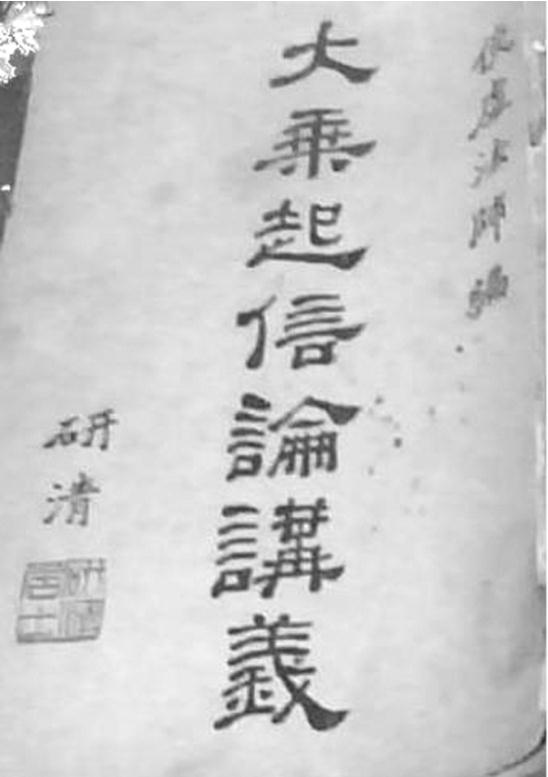 倓虛法師編
大乘起信論講義
研清
研清居士